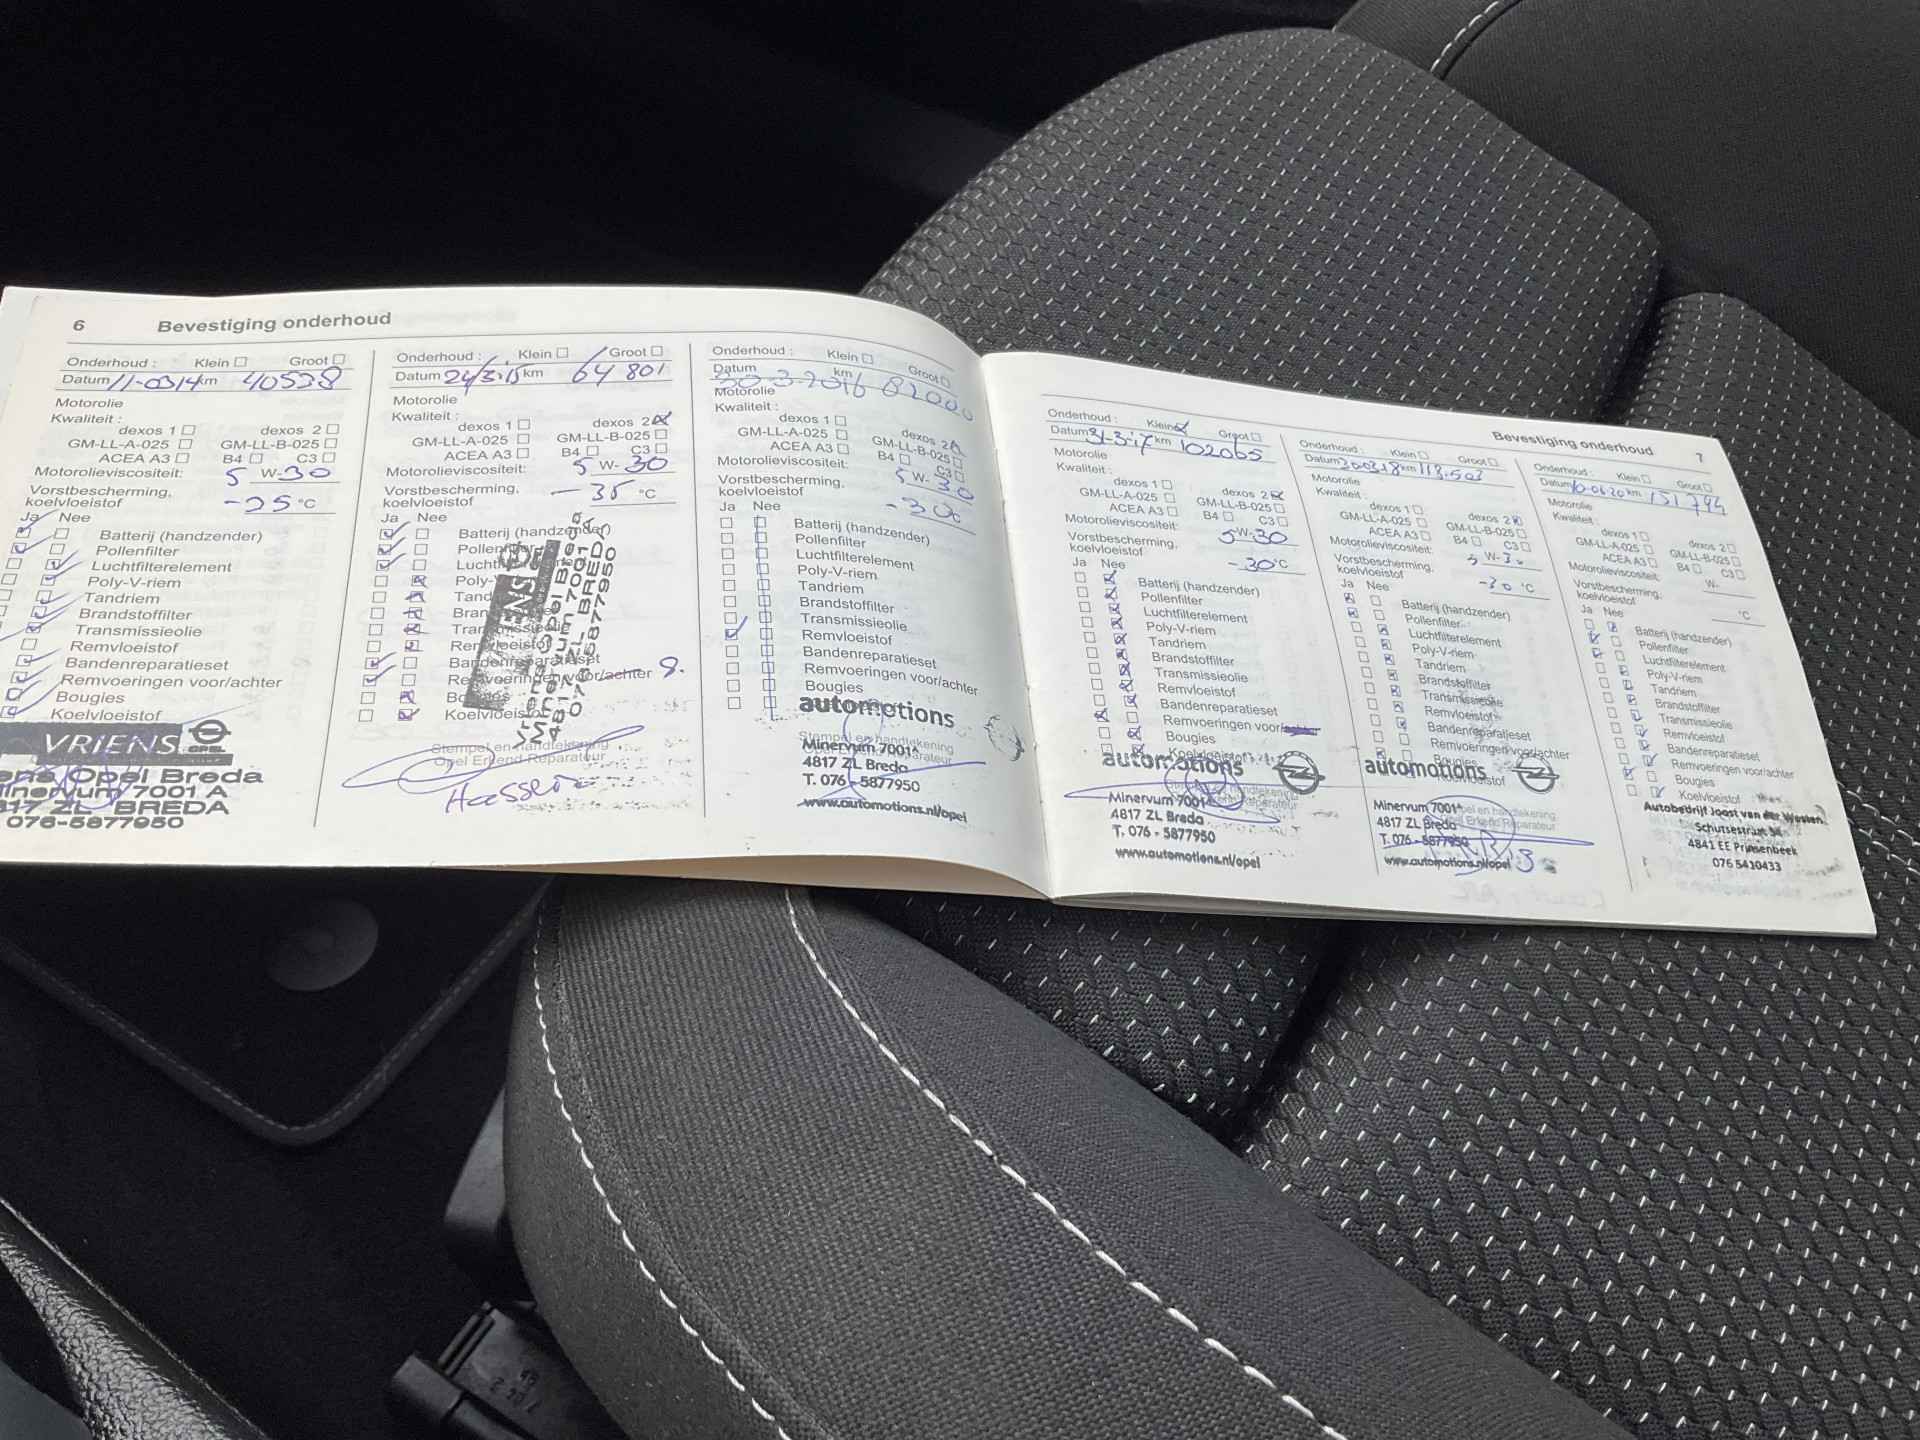 6 Bevestiging onderhoud
Onderhoud : Klein Groot
Datum 11-0314 km 40538
Motorolie
Kwaliteit :
dexos 1 dexos 2
GM-LL-A-025 GM-LL-B-025
ACEA A3 B4 C3
Motorolieviscositeit: 5 W-30
Vorstbescherming,
koelvloeistof -25 °C
Ja Nee
Batterij (handzender)
Pollenfilter
Luchtfilterelement
Poly-V-riem
Tandriem
Brandstoffilter
Transmissieolie
Remvloeistof
Bandenreparatieset
Remvoeringen voor/achter
Bougies
Koelvloeistof
VRIENS OPEL
Opel Breda
7001 A
BREDA
076-5877950
Onderhoud : Klein Groot
Datum 24/3-15 km 64 801
Motorolie
Kwaliteit :
dexos 1 dexos 2
GM-LL-A-025 GM-LL-B-025
ACEA A3 B4 C3
Motorolieviscositeit: 5 W- 30
Vorstbescherming,
koelvloeistof -35 °C
Ja Nee
Batterij (handzender)
Bandenreparatieset
Remvoeringen voor/achter
Koelvloeistof
Vriens Opel Breda
Minervum 7001
4817 ZL BREDA
076-5877950
Stempel en handtekening
Opel Erkend Reparateur
Onderhoud : Klein Groot
Datum km
30-3-2016 82000
Motorolie
Kwaliteit :
dexos 1 dexos 2
GM-LL-A-025 GM-LL-B-025
ACEA A3 B4 C3
Motorolieviscositeit: 5 W- 30
Vorstbescherming,
koelvloeistof -30c
Ja Nee
Batterij (handzender)
Pollenfilter
Luchtfilterelement
Poly-V-riem
Tandriem
Brandstoffilter
Transmissieolie
Remvloeistof
Bandenreparatieset
Remvoeringen voor/achter
Bougies
automotions
Stempel en handtekening
Minervum 7001A
4817 ZL Breda
T. 076 - 5877950
www.automotions.nl/opel
Bevestiging onderhoud 7
Onderhoud : Klein Groot
Datum 31-3-17 km 102065
Motorolie
Kwaliteit :
dexos 1 dexos 2
GM-LL-A-025 GM-LL-B-025
ACEA A3 B4 C3
Motorolieviscositeit: 5 W-30
Vorstbescherming,
koelvloeistof -30°C
Ja Nee
Batterij (handzender)
Pollenfilter
Luchtfilterelement
Poly-V-riem
Tandriem
Brandstoffilter
Transmissieolie
Remvloeistof
Bandenreparatieset
Remvoeringen voor/achter
Bougies
Koelvloeistof
automotions
Minervum 7001A
4817 ZL Breda
T. 076 - 5877950
www.automotions.nl/opel
Onderhoud : Klein Groot
Datum 300318 km 118.503
Motorolie
Kwaliteit :
dexos 1 dexos 2
GM-LL-A-025 GM-LL-B-025
ACEA A3 B4 C3
Motorolieviscositeit: 5 W-30
Vorstbescherming,
koelvloeistof -30 °C
Ja Nee
Batterij (handzender)
Pollenfilter
Luchtfilterelement
Poly-V-riem
Tandriem
Brandstoffilter
Transmissieolie
Remvloeistof
Bandenreparatieset
Remvoeringen voor/achter
Bougies
Koelvloeistof
automotions
Minervum 7001A
4817 ZL Breda
T. 076 - 5877950
www.automotions.nl/opel
Onderhoud : Klein Groot
Datum 10-06-20 km 151 794
Motorolie
Kwaliteit :
dexos 1 dexos 2
GM-LL-A-025 GM-LL-B-025
ACEA A3 B4 C3
Motorolieviscositeit: W-
Vorstbescherming,
koelvloeistof °C
Ja Nee
Batterij (handzender)
Pollenfilter
Luchtfilterelement
Poly-V-riem
Tandriem
Brandstoffilter
Transmissieolie
Remvloeistof
Bandenreparatieset
Remvoeringen voor/achter
Bougies
Koelvloeistof
Autobedrijf Joost van der Westen
Schutsestraat 54
4841 EE Prinsenbeek
076 5410433